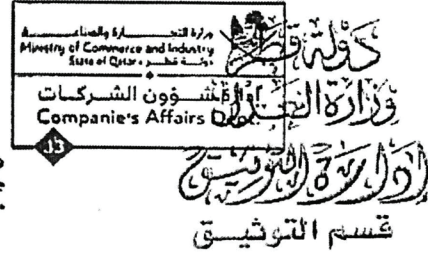 وزارة التجـــارة والصناعـــة
Ministry of Commerce and Industry
State of Qatar دولـــة قطـــر
إدارة شـــؤون الشـركـات
Companie's Affairs Dept.
13
دولة قطر
وزارة العدل
إدارة التوثيق
قسم التوثيـــق